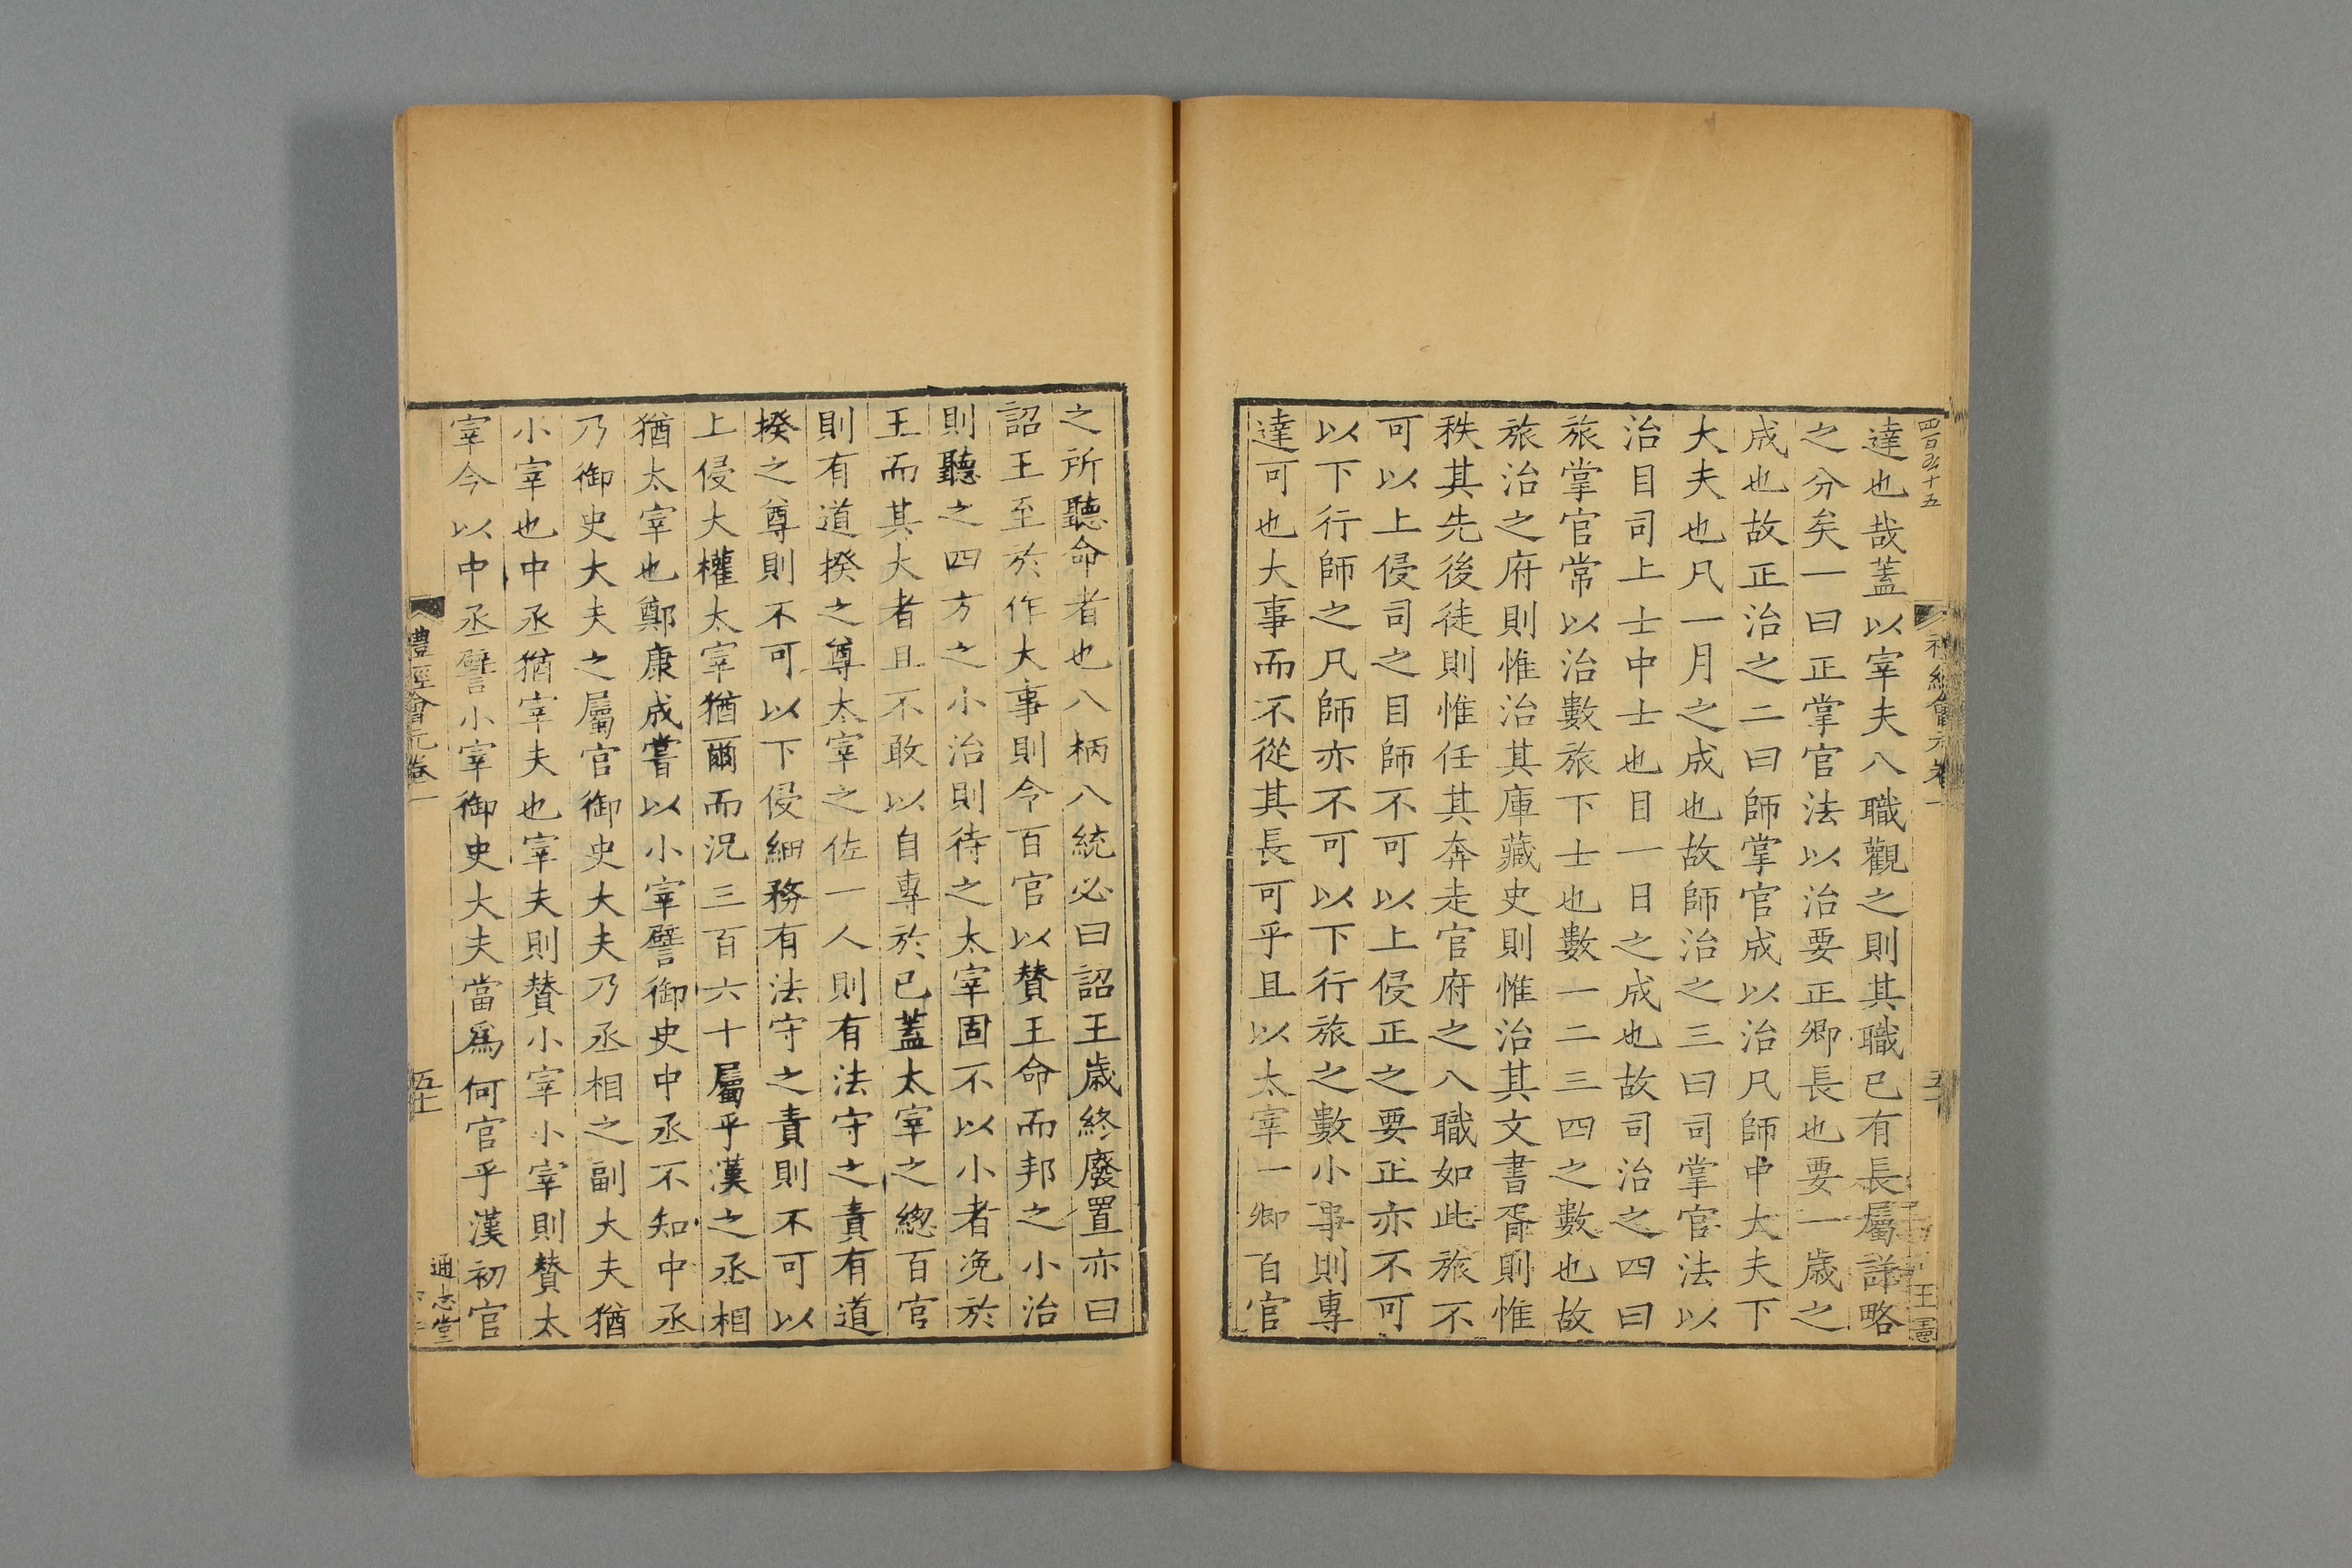 四百五十五
禮經會元卷一
王憲
達也哉蓋以宰夫八職觀之則其職已有長屬詳略
之分矣一曰正掌官法以治要正卿長也要一歲之
成也故正治之二曰師掌官成以治凡師中大夫下
大夫也凡一月之成也故師治之三曰司掌官法以
治目司上士中士也目一日之成也故司治之四曰
旅掌官常以治數旅下士也數一二三四之數也故
旅治之府則惟治其庫藏史則惟治其文書胥則惟
秩其先後徒則惟任其奔走官府之八職如此旅不
可以上侵司之目師不可以上侵正之要正亦不可
以下行師之凡師亦不可以下行旅之數小事則專
達可也大事而不從其長可乎且以太宰一卿百官
之所聽命者也八柄八統必曰詔王歲終廢置亦曰
詔王至於作大事則令百官以贊王命而邦之小治
則聽之四方之小治則待之太宰固不以小者浼於
王而其大者且不敢以自專於已蓋太宰之總百官
則有道揆之尊太宰之佐一人則有法守之責有道
揆之尊則不可以下侵細務有法守之責則不可以
上侵大權太宰猶爾而況三百六十屬乎漢之丞相
猶太宰也鄭康成嘗以小宰譬御史中丞不知中丞
乃御史大夫之屬官御史大夫乃丞相之副大夫猶
小宰也中丞猶宰夫也宰夫則贊小宰小宰則贊太
宰今以中丞譬小宰御史大夫當爲何官乎漢初官
禮經會元卷一
五十
通志堂